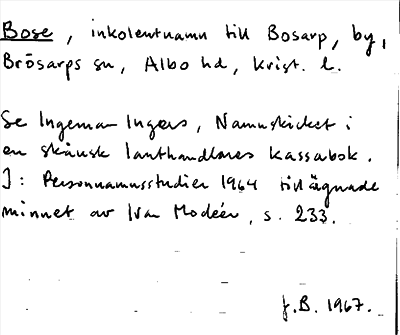 Bose, inkolentnamn till Bosarp, by,
Brösarps sn, Albo hd, Krist. l.
Se Ingemar Ingers, Namnskicket i
en skånsk lanthandlares kassabok.
I: Personnamnsstudier 1964 tillägnade
minnet av Ivar Modéer, s. 233.
J.B. 1967.